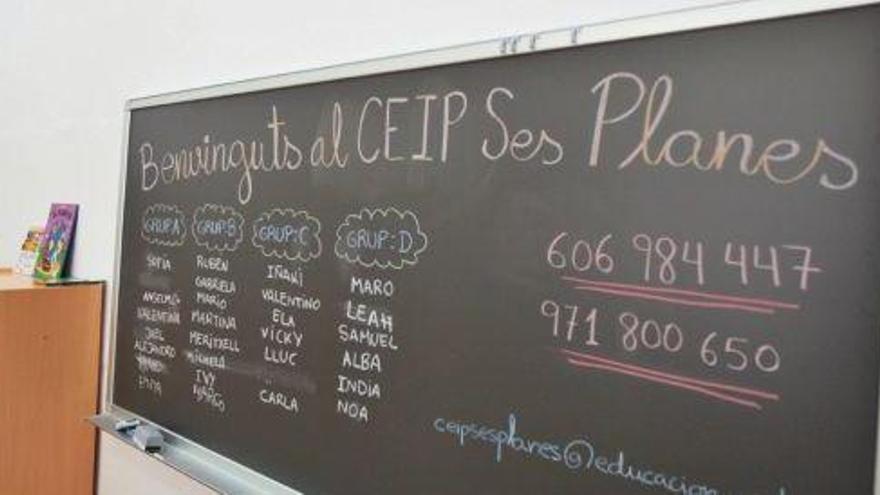 Benvinguts al CEIP Ses Planes
GRUP:A
SOFIA
ANSELMO
VALENTINA
JOEL
ALEJANDRO
GRUP:B
RUBEN
GABRIELA
MARIO
MARTINA
MERITXELL
MICHAELA
IVY
GRUP:C
IÑAKI
VALENTINO
ELA
VICKY
LLUC
CARLA
GRUP:D
MARO
LEAH
SAMUEL
ALBA
INDIA
NOA
606 984 447
971 800 650
ceipsesplanes@educacio